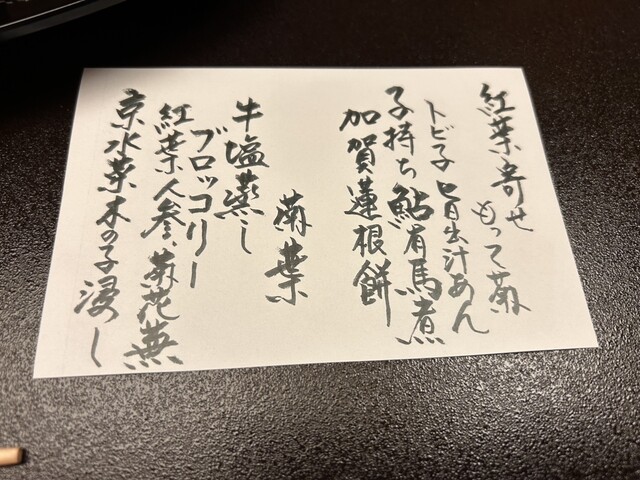 紅葉寄せ
もって菊
トビ子 旨出汁あん
子持ち鮎有馬煮
加賀蓮根餅
菊葉
牛塩蒸し
ブロッコリー
紅葉人参、菊花蕪
京水菜木の子浸し